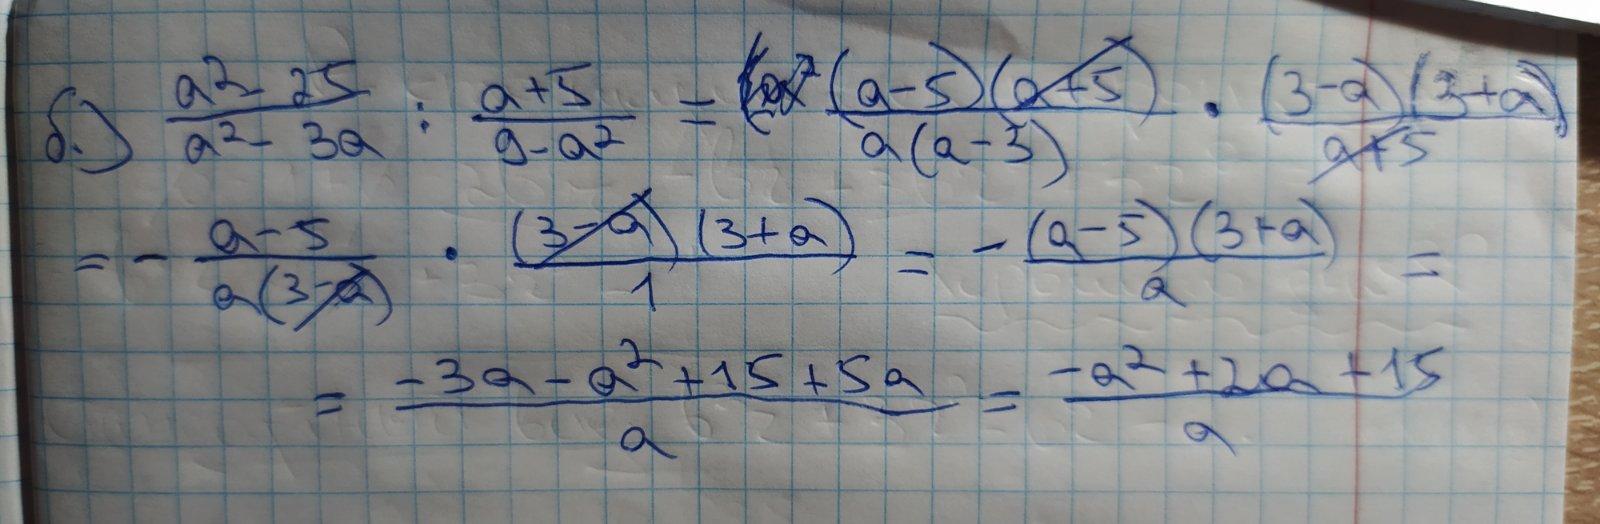 б.) (a² - 25)/(a² - 3a) : (a+5)/(9-a²) = ((a-5)(a+5))/(a(a-3)) · ((3-a)(3+a))/(a+5)
= - (a-5)/(a(3-a)) · ((3-a)(3+a))/1 = - ((a-5)(3+a))/a =
= (-3a - a² + 15 + 5a)/a = (-a² + 2a + 15)/a